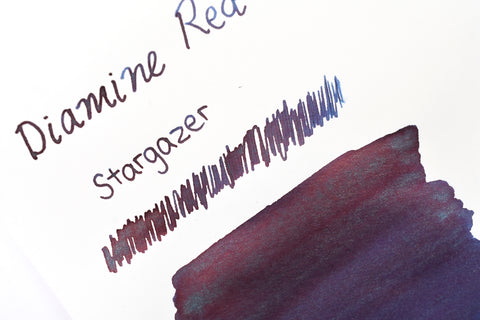 Diamine Red
Stargazer